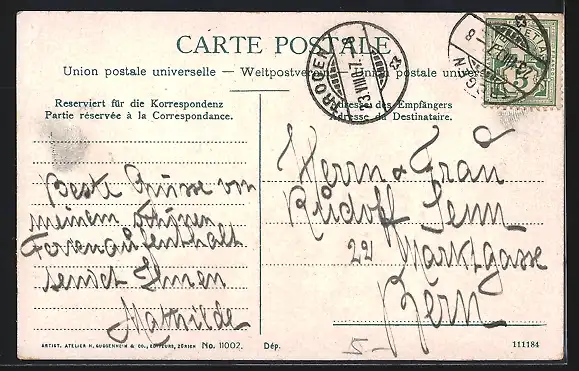 CARTE POSTALE
Union postale universelle — Weltpostverein — Union postale universelle
Reserviert für die Korrespondenz
Partie réservée à la Correspondance.
Adresse des Empfängers
Adresse du Destinataire.
TROGEN
3.VIII.07.-8
Beste Grüsse von
meinem schönen
Ferienaufenthalt
sendet Ihnen
Mathilde
Herrn & Frau
Rudolf Senn
22 Marktgasse
Bern
5-
ARTIST. ATELIER H. GUGGENHEIM & CO., EDITEURS, ZÜRICH No. 11002. Dép.
111184